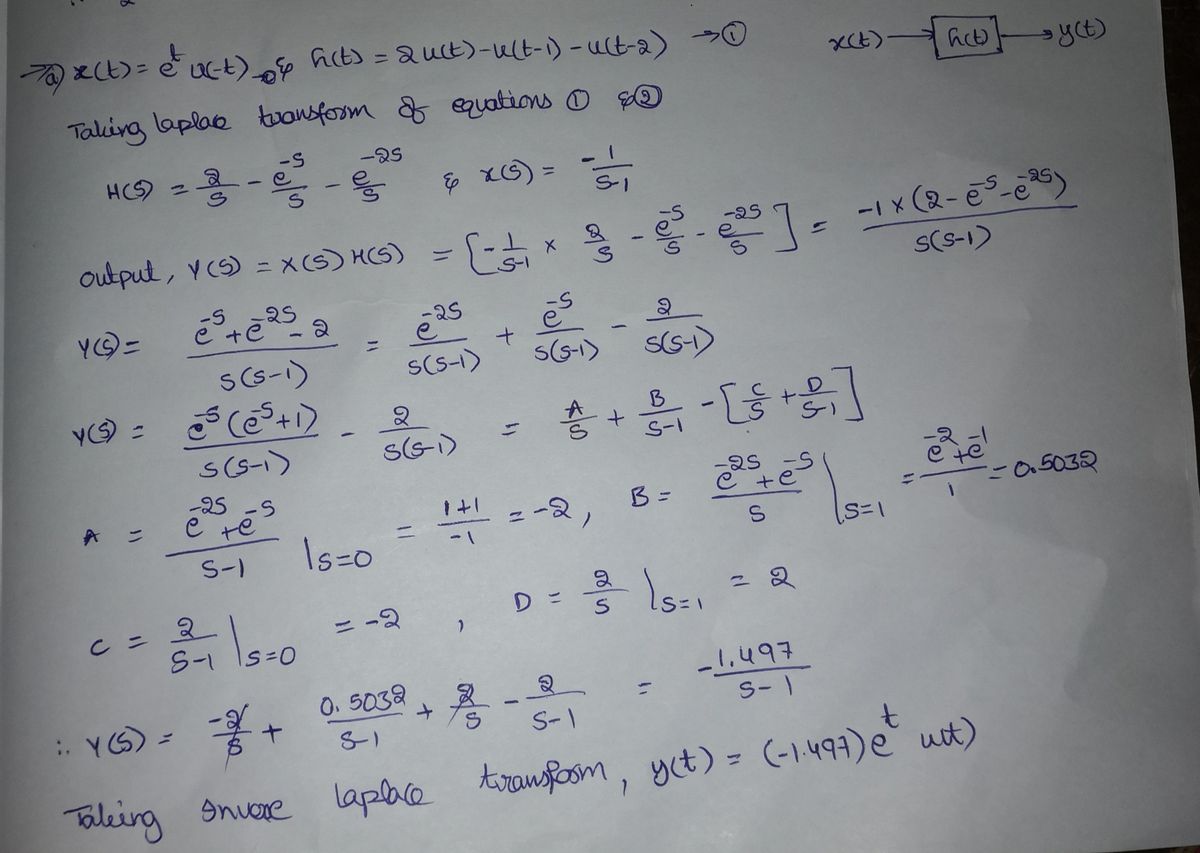 → a) x(t) = e^t u(-t) → ② & h(t) = 2u(t) - u(t-1) - u(t-2) → ① x(t) → h(t) → y(t)
Taking laplace transform of equations ① & ②
H(S) = 2/S - e^-S/S - e^-2S/S & x(S) = -1/S-1
output, Y(S) = X(S) H(S) = [-1/S-1 × 2/S - e^-S/S - e^-2S/S] = -1×(2-e^-S-e^-2S)/S(S-1)
Y(S) = e^-S+e^-2S-2/S(S-1) = e^-2S/S(S-1) + e^-S/S(S-1) - 2/S(S-1)
Y(S) = e^-S(e^-S+1)/S(S-1) - 2/S(S-1) = A/S + B/S-1 - [C/S + D/S-1]
A = e^-2S+e^-S/S-1 |S=0 = 1+1/-1 = -2, B = e^-2S+e^-S/S |S=1 = e^-2+e^-1/1 = 0.5032
C = 2/S-1 |S=0 = -2, D = 2/S |S=1 = 2
∴ Y(S) = -2/S + 0.5032/S-1 + 2/S - 2/S-1 = -1.497/S-1
Taking Inverse laplace transform, y(t) = (-1.497)e^t u(t)